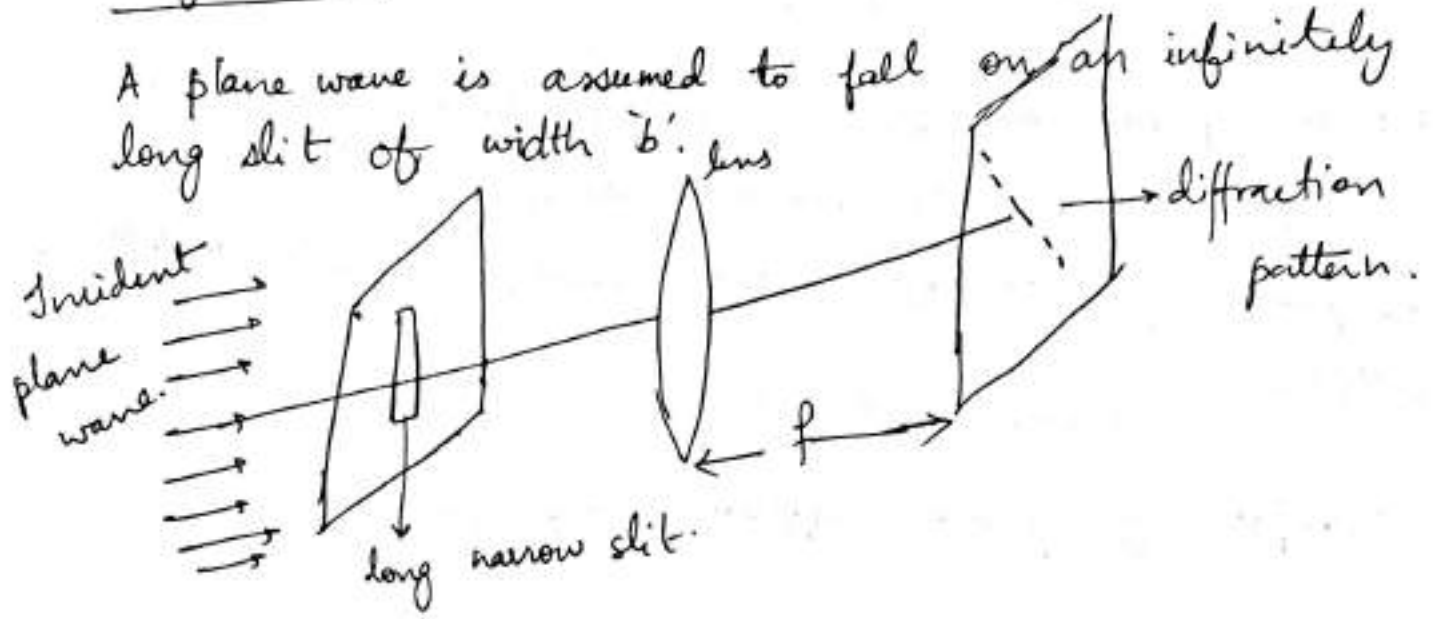 A plane wave is assumed to fall on an infinitely
long slit of width 'b'.
lens
diffraction
pattern.
Incident
plane
wave.
f
long narrow slit.